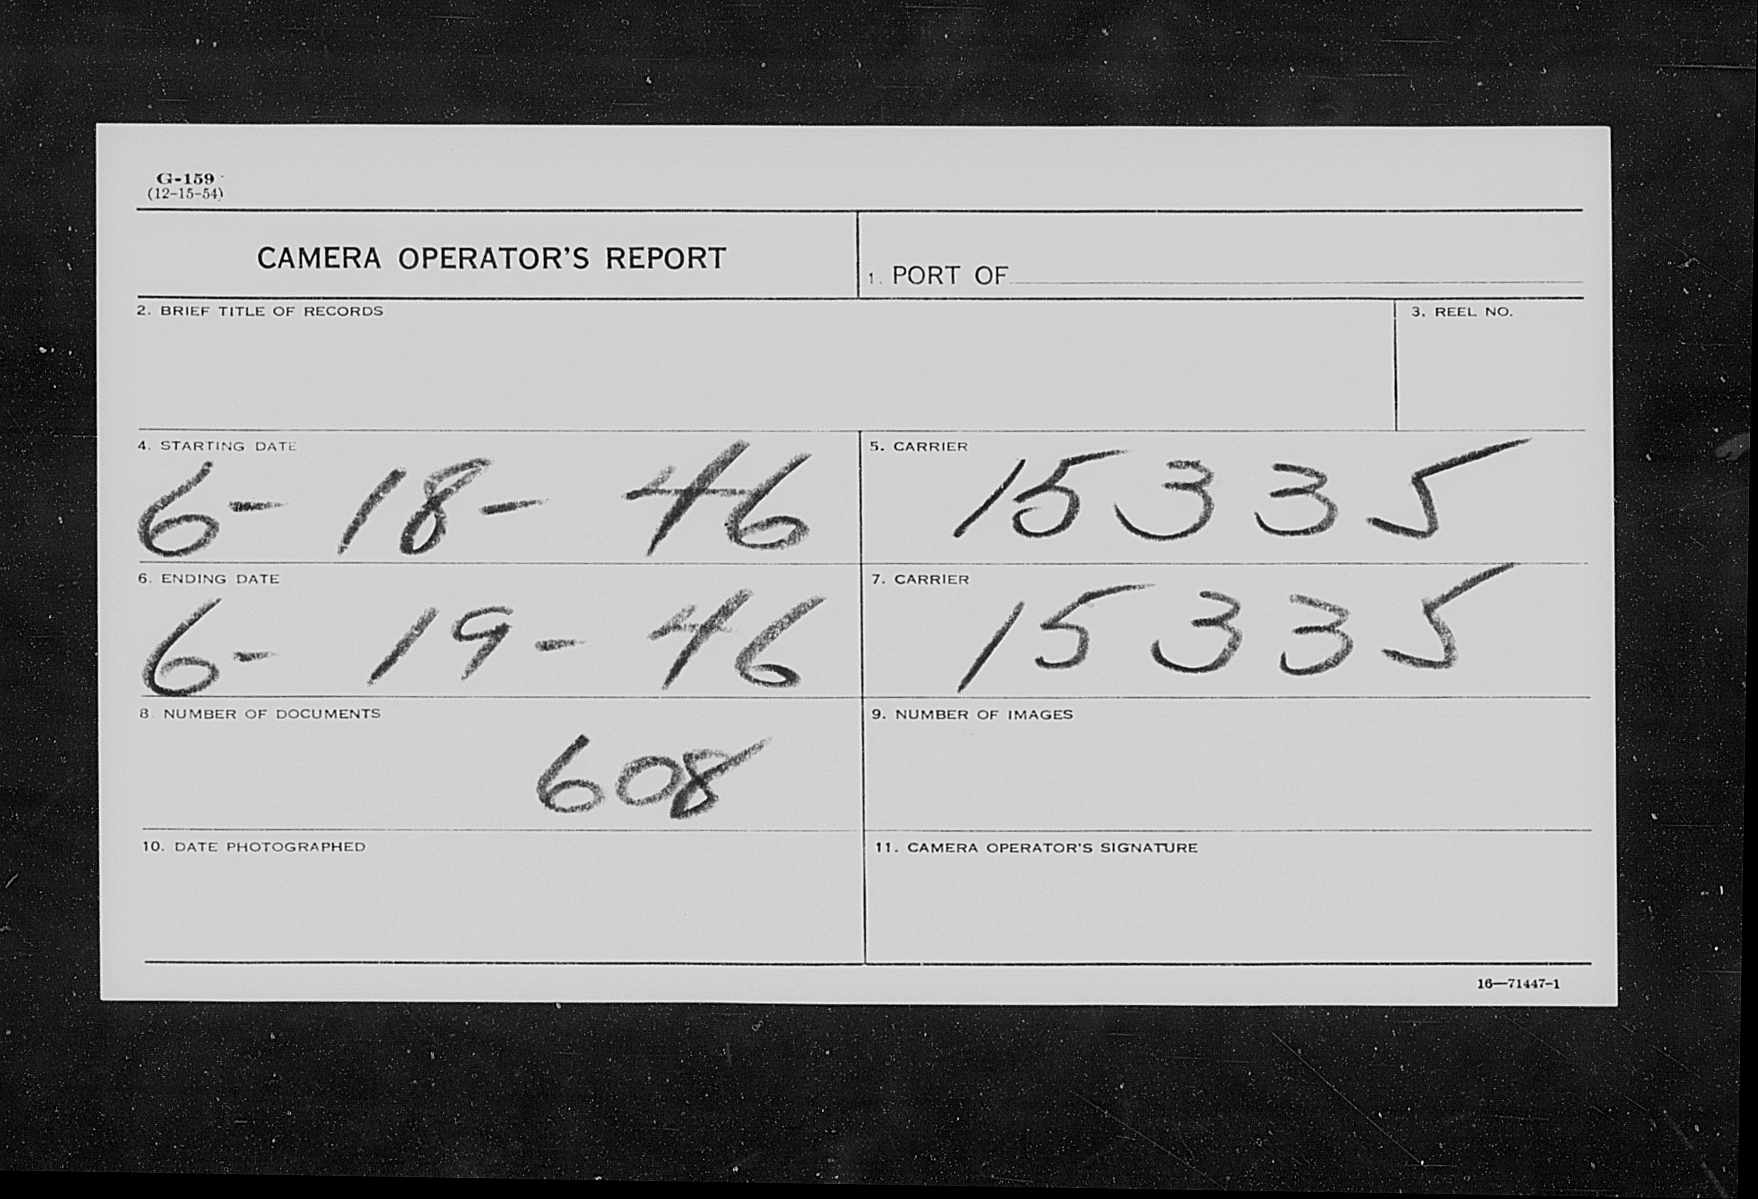 G-159
(12-15-54)
CAMERA OPERATOR'S REPORT
1. PORT OF
2. BRIEF TITLE OF RECORDS
3. REEL NO.
4. STARTING DATE
6- 18- 46
5. CARRIER
15335
6. ENDING DATE
6- 19- 46
7. CARRIER
15335
8. NUMBER OF DOCUMENTS
608
9. NUMBER OF IMAGES
10. DATE PHOTOGRAPHED
11. CAMERA OPERATOR'S SIGNATURE
16—71447-1